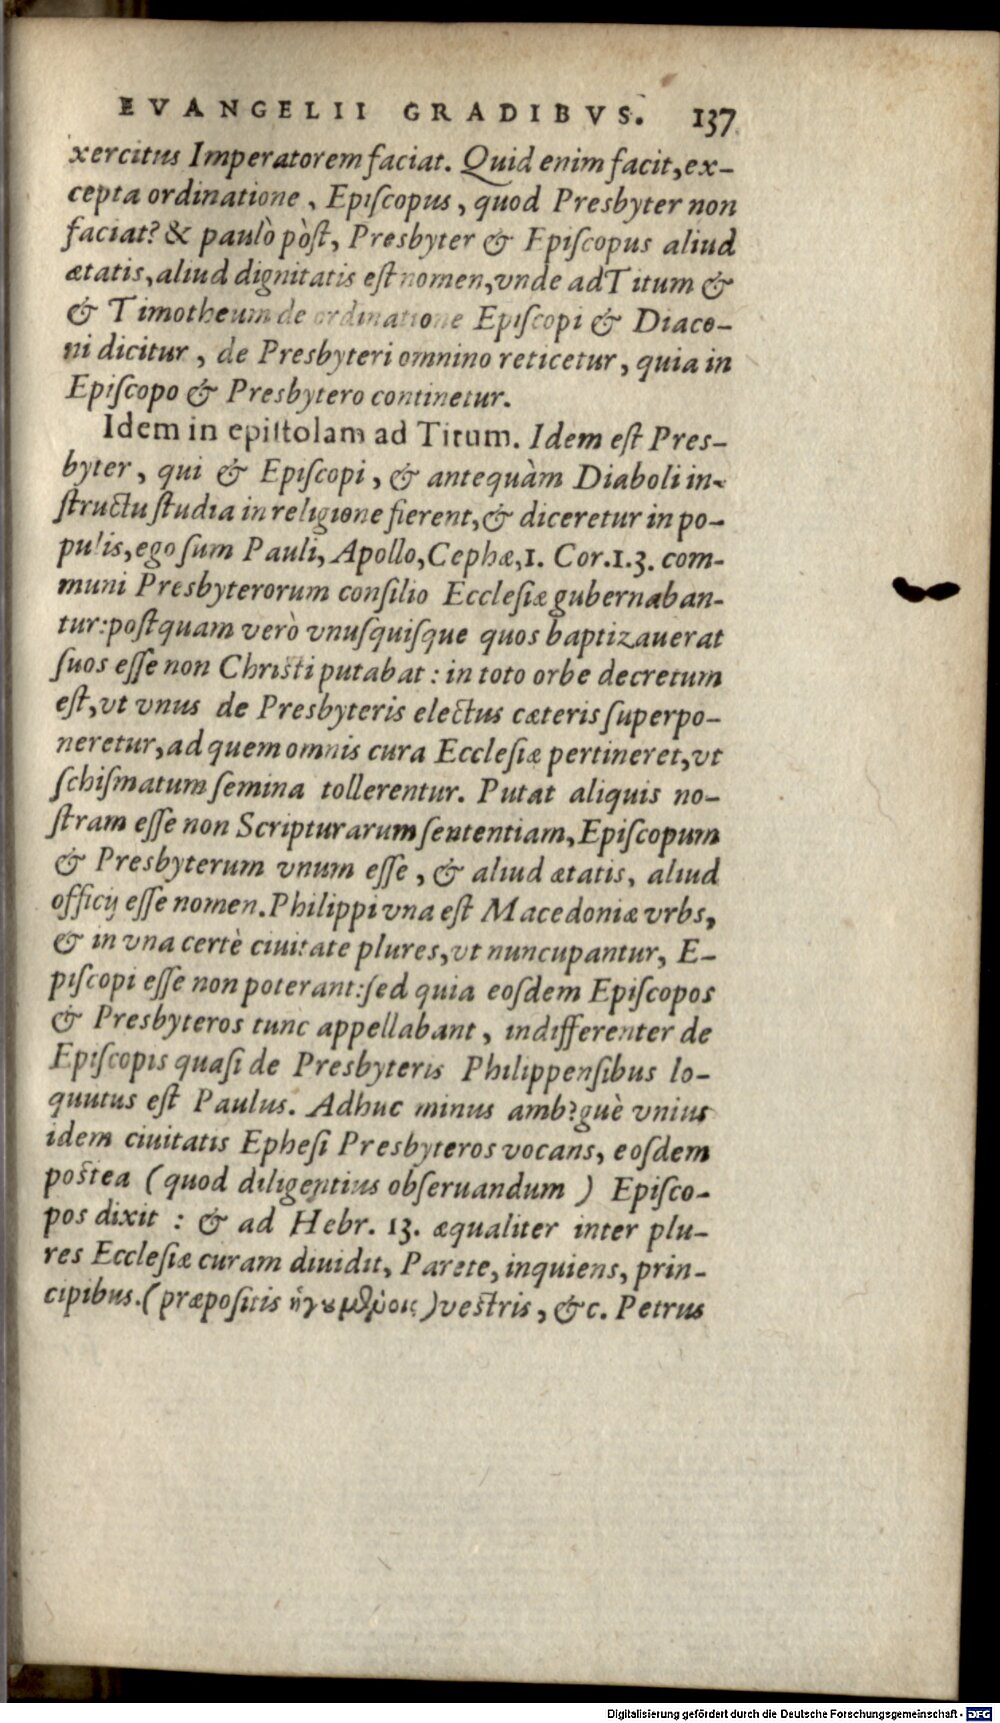 EVANGELII GRADIBVS. 137
xercitus Imperatorem faciat. Quid enim facit, ex-
cepta ordinatione, Epiſcopus, quod Presbyter non
faciat? & paulò pòſt, Presbyter & Epiſcopus aliud
ætatis, aliud dignitatis eſt nomen, vnde ad Titum &
& Timotheum de ordinatione Epiſcopi & Diaco-
ni dicitur, de Presbyteri omnino reticetur, quia in
Epiſcopo & Presbytero continetur.
Idem in epiſtolam ad Titum. Idem eſt Pres-
byter, qui & Epiſcopi, & antequàm Diaboli in-
ſtructu ſtudia in religione fierent, & diceretur in po-
pulis, ego ſum Pauli, Apollo, Cephæ, 1. Cor. 1.3. com-
muni Presbyterorum conſilio Eccleſiæ gubernaban-
tur: poſtquam verò vnuſquiſque quos baptizauerat
ſuos eſſe non Chriſti putabat: in toto orbe decretum
eſt, vt vnus de Presbyteris electus cæteris ſuperpo-
neretur, ad quem omnis cura Eccleſiæ pertineret, vt
ſchiſmatum ſemina tollerentur. Putat aliquis no-
ſtram eſſe non Scripturarum ſententiam, Epiſcopum
& Presbyterum vnum eſſe, & aliud ætatis, aliud
officij eſſe nomen. Philippi vna eſt Macedoniæ vrbs,
& in vna certè ciuitate plures, vt nuncupantur, E-
piſcopi eſſe non poterant: ſed quia eoſdem Epiſcopos
& Presbyteros tunc appellabant, indifferenter de
Epiſcopis quaſi de Presbyteris Philippenſibus lo-
quutus eſt Paulus. Adhuc minus amb?guè vnius
idem ciuitatis Epheſi Presbyteros vocans, eoſdem
poſtea (quod diligentius obſeruandum) Epiſco-
pos dixit: & ad Hebr. 13. æqualiter inter plu-
res Eccleſiæ curam diuidit, Parete, inquiens, prin-
cipibus. (præpoſitis ἡγουμένοις) veſtris, &c. Petrus
Digitalisierung gefördert durch die Deutsche Forschungsgemeinschaft - DFG